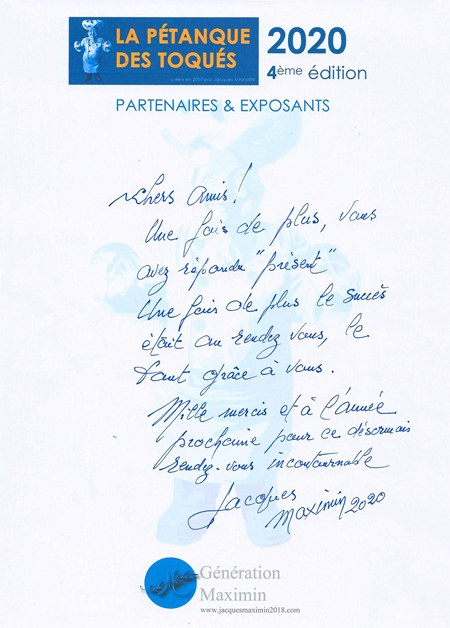 LA PÉTANQUE
DES TOQUÉS
2020
4ème édition
PARTENAIRES & EXPOSANTS
Chers Amis!
Une fois de plus, vous
avez répondu "présent"
Une fois de plus le succès
était au rendez vous, le
tout grâce à vous.
Mille mercis et à l'année
prochaine pour ce désormais
rendez-vous incontournable
Jacques
Maximin 2020
Génération
Maximin
www.jacquesmaximin2018.com